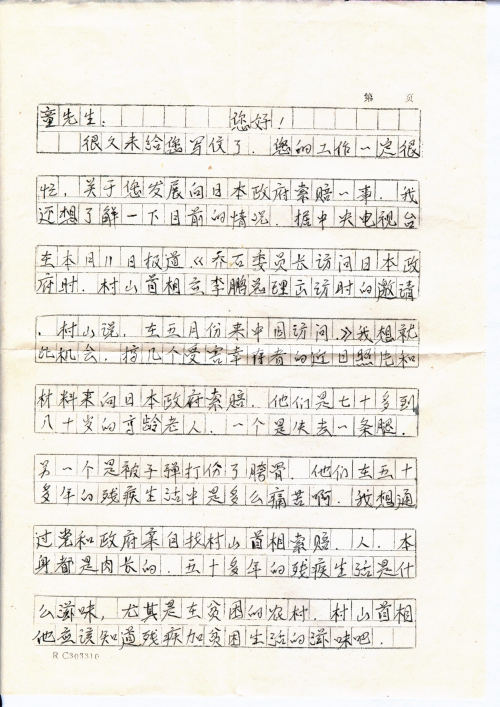 第 页
童先生： 您好！
很久未给您写信了．您的工作一定很
忙，关于您发展向日本政府索赔一事．我
还想了解一下目前的情况．据中央电视台
在本月11日报道．《乔石委员长访问日本政
府时．村山首相应李鹏总理出访时的邀请
．村山说．在五月份来中国访问．》我想就
此机会．搞几个受害幸存者的近日照片和
材料来向日本政府索赔．他们是七十多到
八十岁的高龄老人．一个是失去一条腿．
另一个是被子弹打伤了胯骨．他们在五十
多年的残疾生活中是多么痛苦啊．我想通
过党和政府亲自找村山首相索赔．人．本
身都是肉长的．五十多年的残疾生活是什
么滋味，尤其是在贫困的农村．村山首相
他应该知道残疾加贫困生活的滋味吧．
R C303310